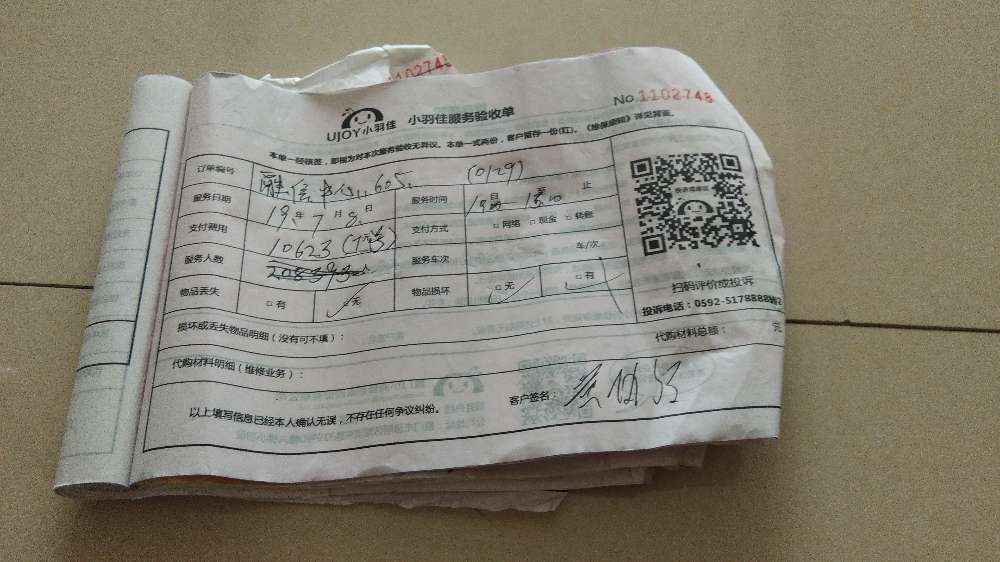 1102748
UJOY小羽佳 小羽佳服务验收单 No.1102748
本单一经核签，即视为对本次服务验收无异议。本单一式两份，客户留存一份(红)。《维保须知》详见背面。
订单编号 605 (0129)
服务日期 19年7月8日 服务时间 止
支付费用 10623 支付方式 □网络 □现金 □转账
服务人数 服务车次 车/次
物品丢失 □有 □无 物品损坏 □无 □有
扫码评价或投诉
投诉电话：0592-5178888转2
损坏或丢失物品明细（没有可不填）：
代购材料总额： 元
代购材料明细（维修业务）：
以上填写信息已经本人确认无误，不存在任何争议纠纷。 客户签名：